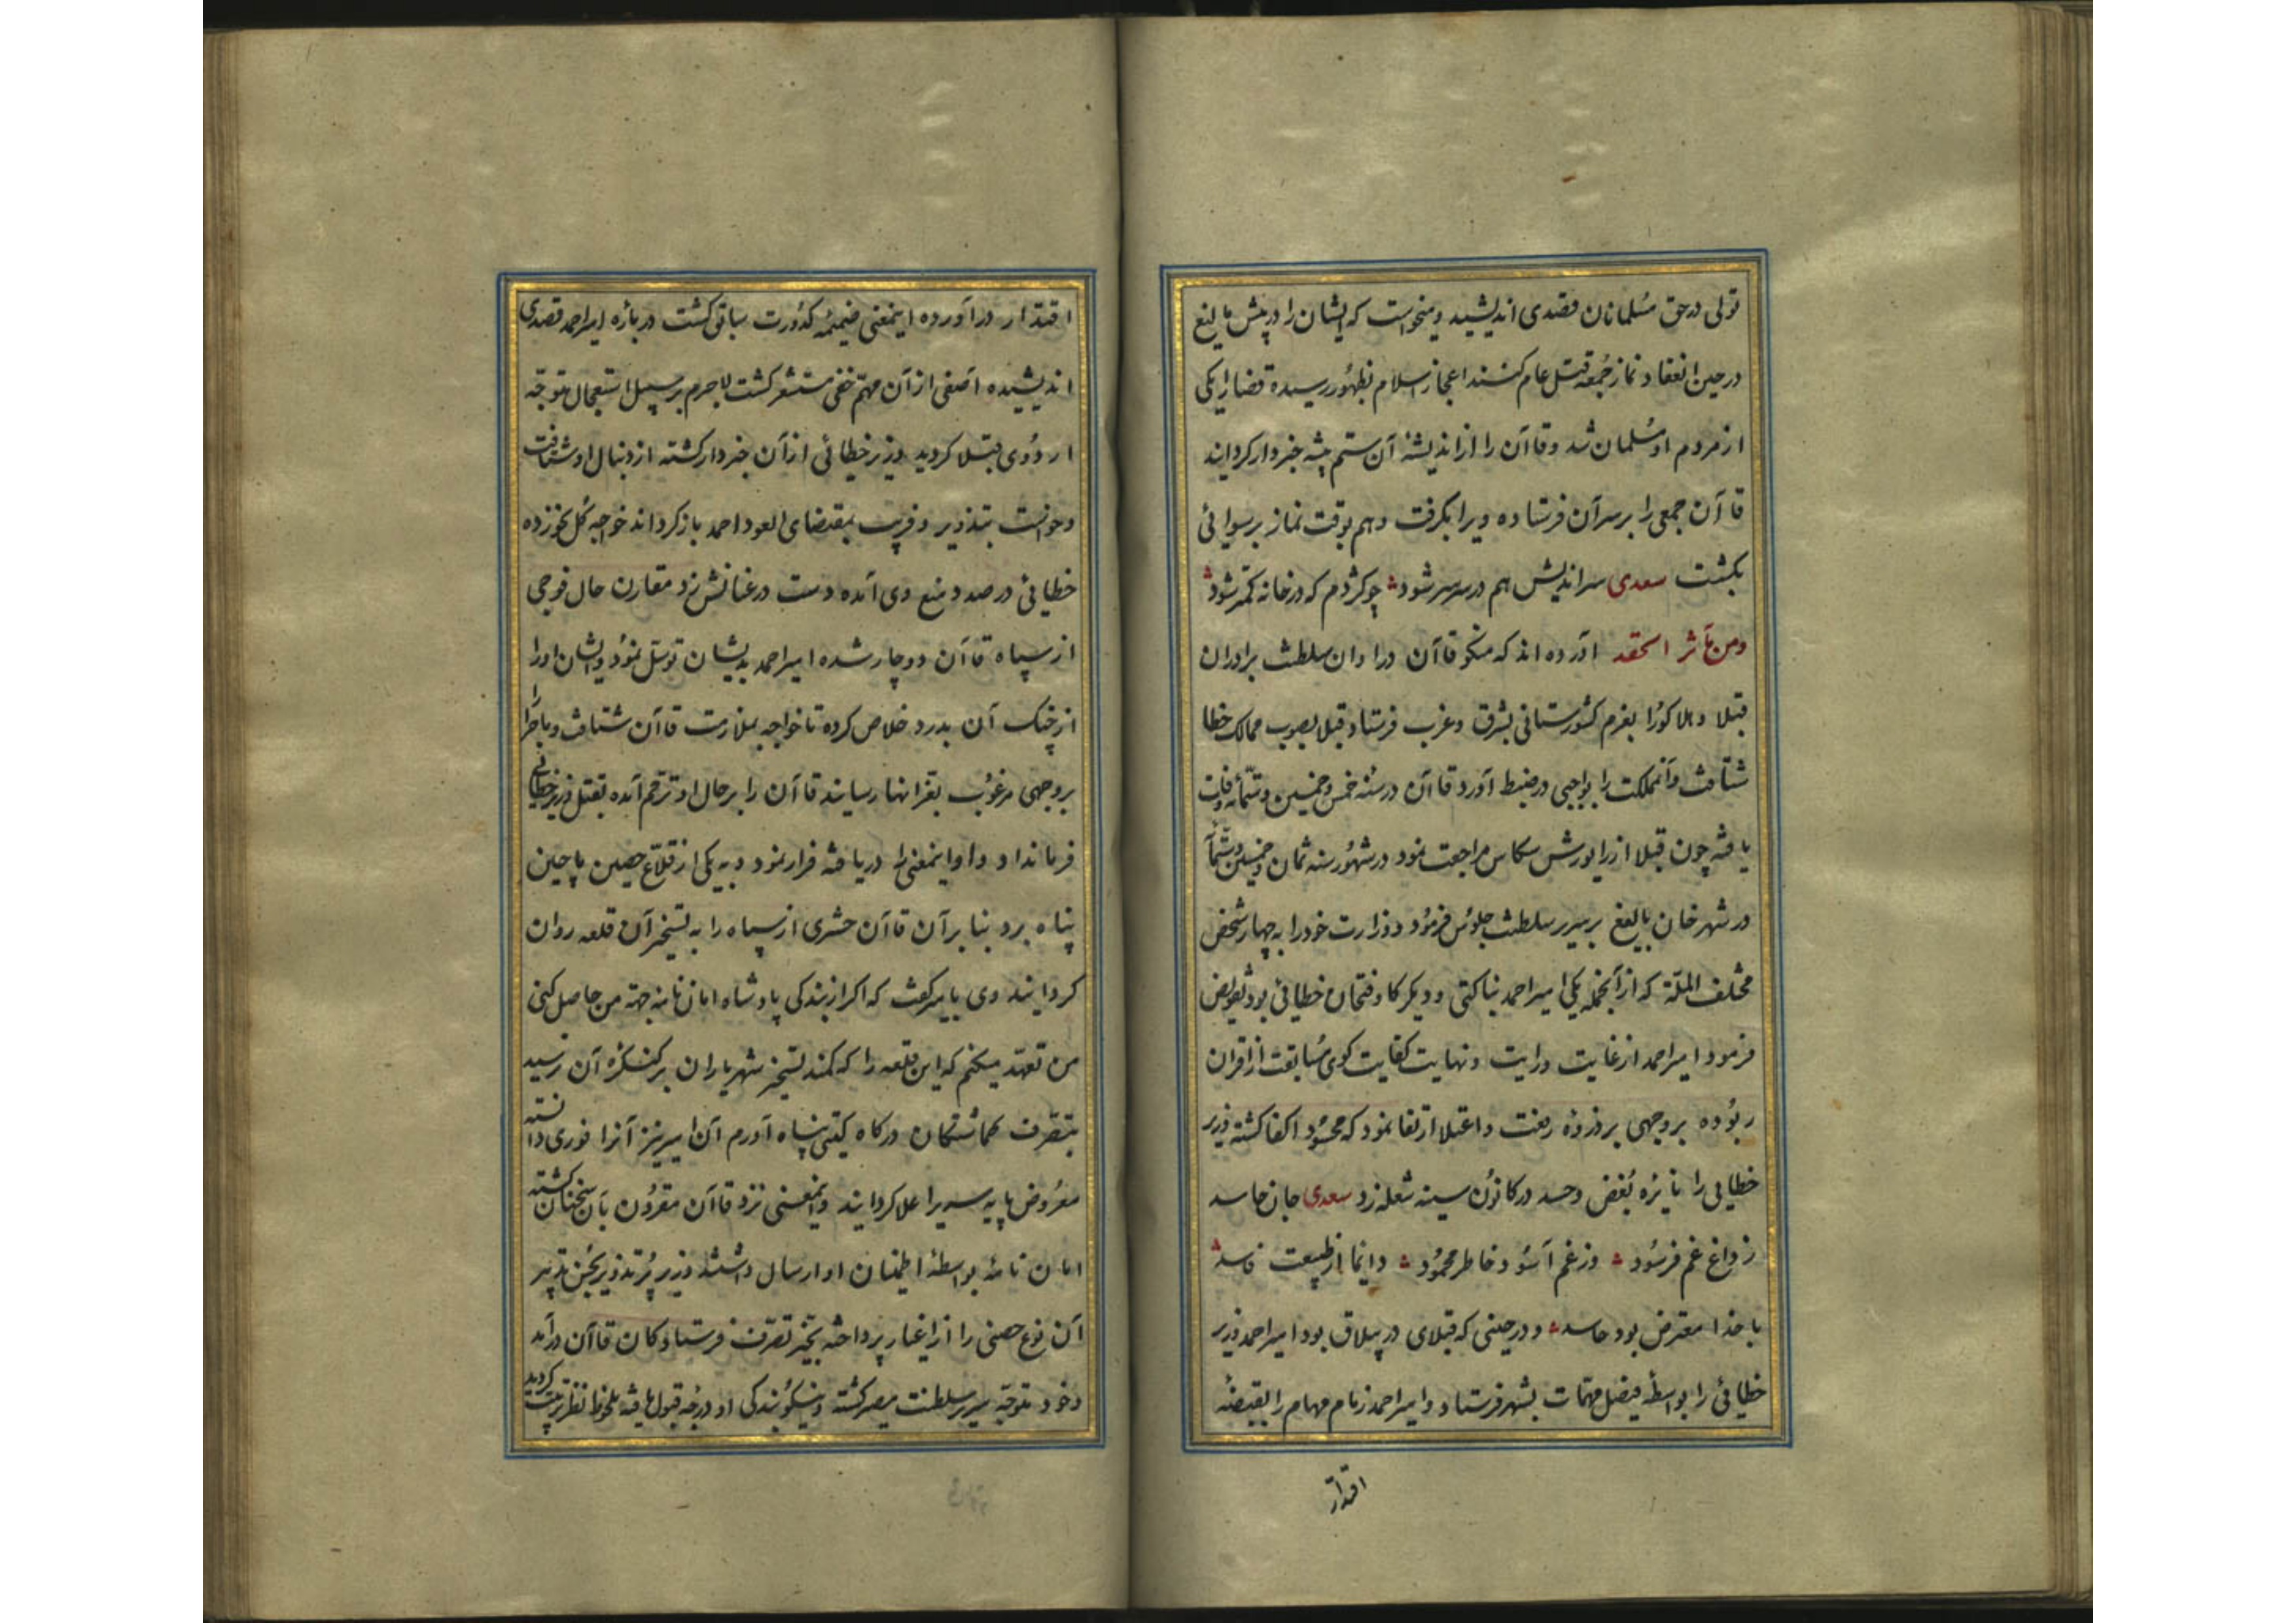 تولی در حق مسلمانان قصدی اندیشید و میخواست که ایشان را در پیش بالیغ
در حین انعقاد نماز جمعه قتل عام کنند اعجاز اسلام بظهور رسیده قضا را یکی
از مردم او مسلمان شد و قاآن را از اندیشهٔ آن ستم پیشه خبردار کردانید
قاآن جمعی را بر سر آن فرستاده ویرا بکرفت و هم بوقت نماز برسوائی
بکشت سعدی سراندیش هم در سر سر شود چو کژدم که در خانه کمتر شود
ومن مآثر الحقد آورده اند که منکو قاآن در اوان سلطنت برادران
قبلا و هلاکو را بعزم کشورستانی بشرق و غرب فرستاد قبلا بصوب ممالک خطا
شتافت و آنمملکت را بواجبی در ضبط آورد قاآن در سنه خمس و خمسین و ستمائه وفات
یافته چون قبلا از یورش مراجعت نمود در شهور سنه ثمان و خمسین و ستمآ
در شهر خان بالیغ بر سریر سلطنت جلوس فرمود و وزارت خود را به چهار شخص
مختلف الملّة که از آنجمله یکی امیر احمد بناکتی و دیکر کاوفنحان خطائی بود تفویض
فرمود امیر احمد از غایت درایت و نهایت کفایت کوی مسابقت از اقران
ربوده بر وجهی بر ذروه رفعت و اعتلا ارتقا نمود که محسود اکفا کشته وزیر
خطایی را نایزه بغض و حسد در کانون سینه شعله زد سعدی جان حاسد
ز داغ غم فرسود وز غم آسود خاطر محمود دائما از طبیعت فاسد
با خدا معترض بود حاسد و در حینی که قبلای در ییلاق بود امیر احمد وزیر
خطائی را بواسطهٔ فیصل مهمّات بشهر فرستاد و امیر احمد زمام مهام را بقبضهٔ
اقتدار
اقتدار درآورده اینمعنی ضمیمهٔ کدورت سباقی کشت در باره امیر احمد قصدی
اندیشیده آصفی از آن مهمّ خفی مستشعر کشت لاجرم بر سبیل استعجال متوجّه
اردوی قبلا کردید وزیر خطائی از آن خبردار کشته از دنبال او شتافت
و خواست بتذویر و فریب بمقتضای العود احمد باز کرداند خواجه کل نخورده
خطائی در صدد منع وی آمده دست در عنانش زد مقارن حال فوجی
از سپاه قاآن دوچار شده امیر احمد بدیشان توسّل نمود و ایشان او را
از چنک آن بدرد خلاص کرده تا خواجه بملازمت قاآن شتافت و ماجرا را
بر وجهی مرغوب بعز انها رسانید قاآن را بر حال او ترحّم آمده بقتل وزیر خطائی
فرمان داد و او اینمعنی را دریافته فرار نمود و به یکی از قلاع حصین ماچین
پناه برد بنا بر آن قاآن حشری از سپاه را به تسخیر آن قلعه روان
کردانید وی بامیر کفت که اکر از بندکی پادشاه امان نامه جهة من حاصل کنی
من تعهّد میکنم که این قلعه را که کمند تسخیر شهریاران بر کنکرهٔ آن نرسید
بتصرف کماشتکان درکاه کیتی پناه آورم آن امیر نیز آنرا فوری دانسته
معروض پایه سریر اعلا کردانید و اینمعنی نزد قاآن مقرون بآن سخنان کشته
امان نامه بواسطهٔ اطمنان او ارسال داشتند وزیر پر تذویر بحسن تدبیر
آن نوع حصنی را از اغیار پرداخته بحیّز تصرّف فرستادکان قاآن درآمد
و خود متوجّه سریر سلطنت مصیر کشته و نیکو بندکی او درجهٔ قبول یافته ملحوظ نظر تربیت کردید